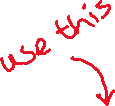 use this